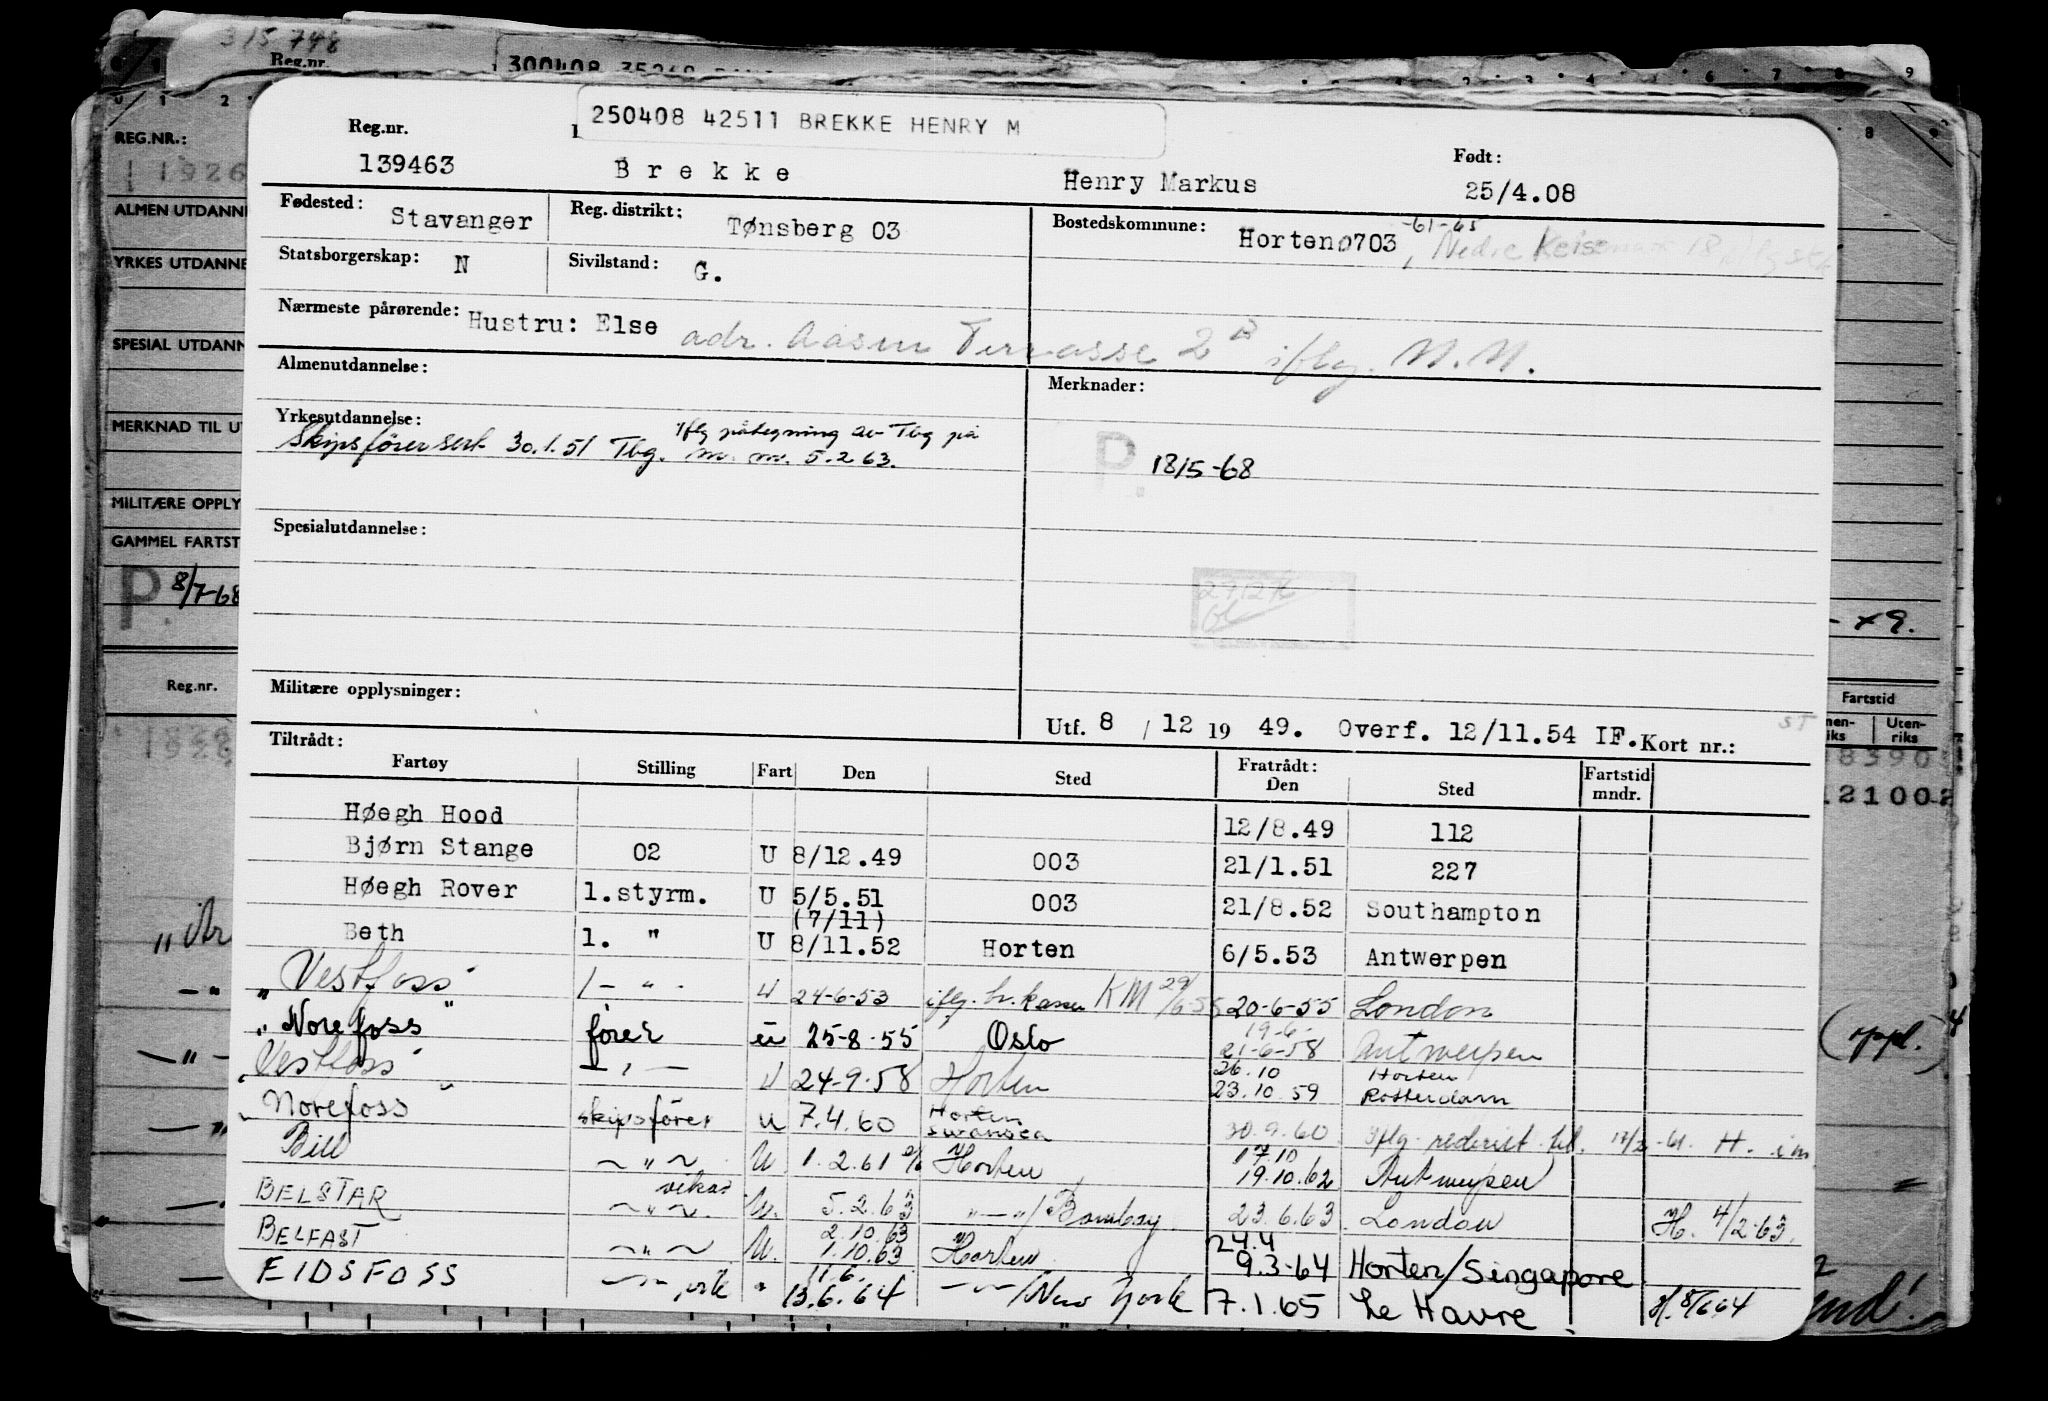 315 748
Reg.nr.
REG.NR.:
ALMEN UTDANNE
YRKES UTDANNE
SPESIAL UTDANN
MERKNAD TIL U
MILITÆRE OPPLY
GAMMEL FARTST
P. 8/7-68
Reg.nr.
250408 42511 BREKKE HENRY M
Reg.nr. Født:
139463 Brekke Henry Markus 25/4.08
Fødested: Stavanger Reg. distrikt: Tønsberg 03 Bostedskommune: Horten 0703 -61-65
Statsborgerskap: N Sivilstand: G.
Nærmeste pårørende: Hustru: Else adr. Aasen Terrasse 2B iflg. M.M.
Almenutdannelse: Merknader:
Yrkesutdannelse: Skipsførersert 30.1.51 Tbg. iflg påtegning av Tbg på m.m. 5.2.63.
P. 18/5-68
Spesialutdannelse:
Militære opplysninger:
Utf. 8 / 12 19 49. Overf. 12/11.54 IF. Kort nr.:
Tiltrådt: Fratrådt:
Fartøy Stilling Fart Den Sted Den Sted Fartstid mndr.
Høegh Hood 12/8.49 112
Bjørn Stange 02 U 8/12.49 003 21/1.51 227
Høegh Rover 1.styrm. U 5/5.51 003 21/8.52 Southampton
(7/11)
Beth 1. " U 8/11.52 Horten 6/5.53 Antwerpen
"Vestfoss" 1 - " - U 24-6-53 20-6-55 London
"Norefoss" fører U 25-8-55 Oslo 19-6- 21-6-58 Antwerpen
"Vestfoss" - " - U 24-9-58 Horten 26.10 Horten 23.10.59 Rotterdam
"Norefoss" skipsfører U 7.4.60 Horten Swansea 30.9.60 Iflg. rederiet
Bill ~ " ~ U. 1.2.61 Horten 17.10 19.10.62 Antwerpen
BELSTAR vikar ~ " ~ U. 5.2.63 " - "/Bombay 23.6.63 London H. 4/2-63.
BELFAST ~ " ~ U. 2.10.63 1.10.63 Horten 24.4 9.3-64 Horten/Singapore
EIDSFOSS 11.6. 13.6.64 - " -/New York 7.1.65 Le Havre H. 8/6 64
Fartstid
Uten-riks
(oppl.)